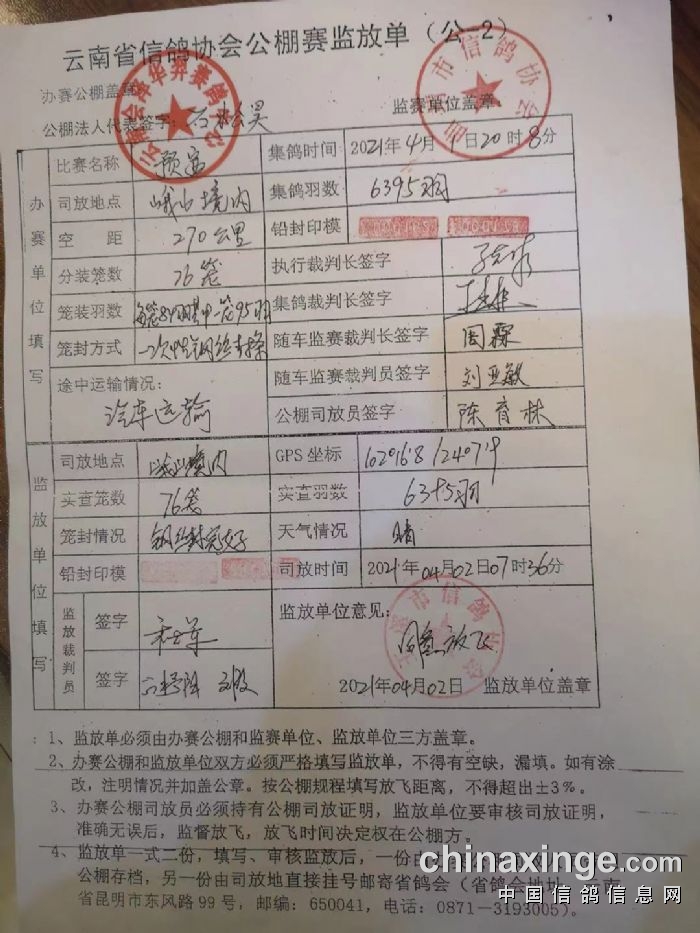 云南省信鸽协会公棚赛监放单（公-2）
办赛公棚盖章 监赛单位盖章
公棚法人代表签字：
办赛单位填写
比赛名称 预赛 集鸽时间 2021年4月1日20时8分
司放地点 峨山境内 集鸽羽数 6395羽
空距 270公里 铅封印模
分装笼数 76笼 执行裁判长签字
笼装羽数 集鸽裁判长签字
笼封方式 随车监赛裁判长签字 周霖
途中运输情况： 随车监赛裁判员签字 刘亚敏
汽车运输 公棚司放员签字 陈育林
监放单位填写
司放地点 峨山境内 GPS坐标
实查笼数 76笼 实查羽数 6395羽
笼封情况 钢丝封完好 天气情况 晴
铅封印模 司放时间 2021年04月02日07时36分
监放裁判员 签字 监放单位意见：
同意放飞
签字
2021年04月02日 监放单位盖章
1、监放单必须由办赛公棚和监赛单位、监放单位三方盖章。
2、办赛公棚和监放单位双方必须严格填写监放单，不得有空缺，漏填。如有涂
改，注明情况并加盖公章。按公棚规程填写放飞距离，不得超出±3%。
3、办赛公棚司放员必须持有公棚司放证明，监放单位要审核司放证明，
准确无误后，监督放飞，放飞时间决定权在公棚方。
4、监放单一式二份，填写、审核监放后，一份由
公棚存档，另一份由司放地直接挂号邮寄省鸽会（省鸽会地址：云南
省昆明市东风路99号，邮编：650041，电话：0871-3193005）。
chinaxinge.com
中国信鸽信息网